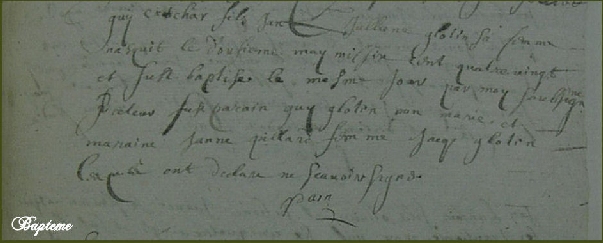 guy exachar fils Jan Julliene glotin sa femme
nasquit le douziéme may mil six cent quatre vingt
et fust baptise le mesme jour par moy soubssigne
Recteur fust parain guy glotin son et
maraine Janne femme Jacq glotin
Lesquels ont declare ne scauoir signer
Bapteme